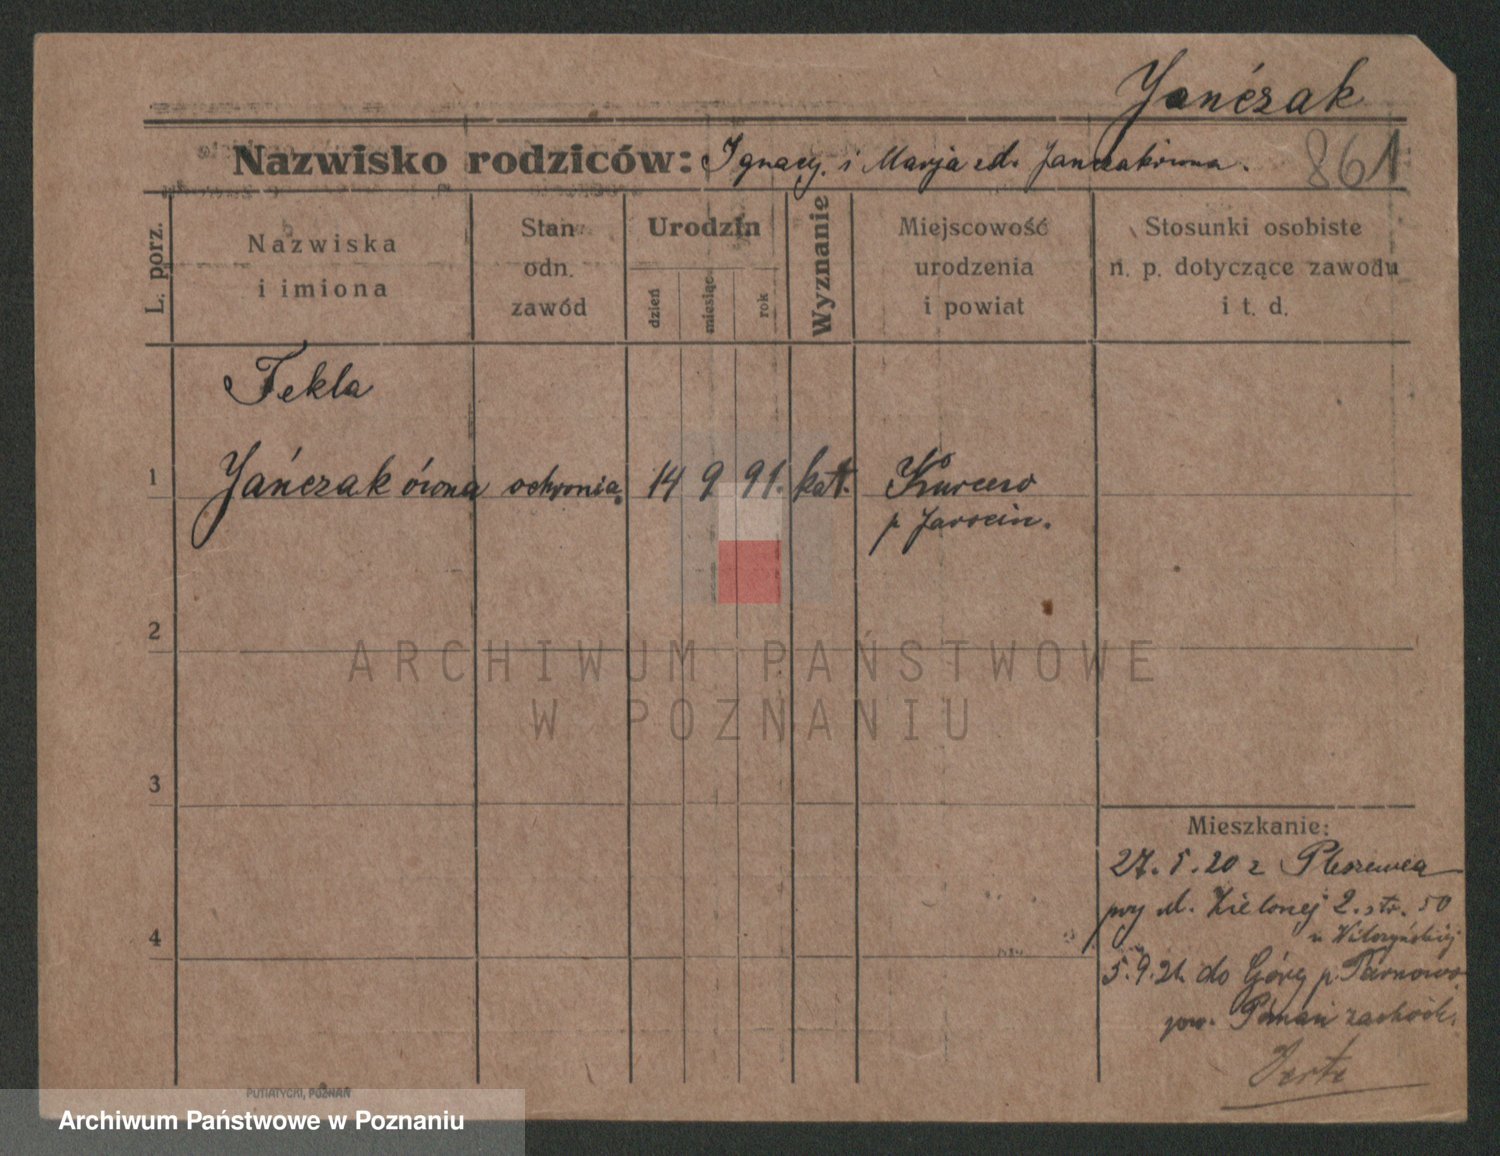 Jańczak
Nazwisko rodziców: Ignacy i Marja zd. Janczakówna. 861
L. porz.
Nazwiska i imiona
Stan odn. zawód
Urodzin
dzień miesiąc rok
Wyznanie
Miejscowość urodzenia i powiat
Stosunki osobiste n. p. dotyczące zawodu i t. d.
Tekla
1 Jańczakówna ochronia. 14 9 91. kat. Kurcew
p Jarocin.
2
ARCHIWUM PAŃSTWOWE
W POZNANIU
3
Mieszkanie:
27.5.20 z Pleszewa
przy ul. Zielonej 2. str. 50
u Wilczyńskiej
4
5.9.21. do Góry p. Tarnowo
pow. Poznań zachód.
Verte
PUTIATYCKI, POZNAŃ
Archiwum Państwowe w Poznaniu